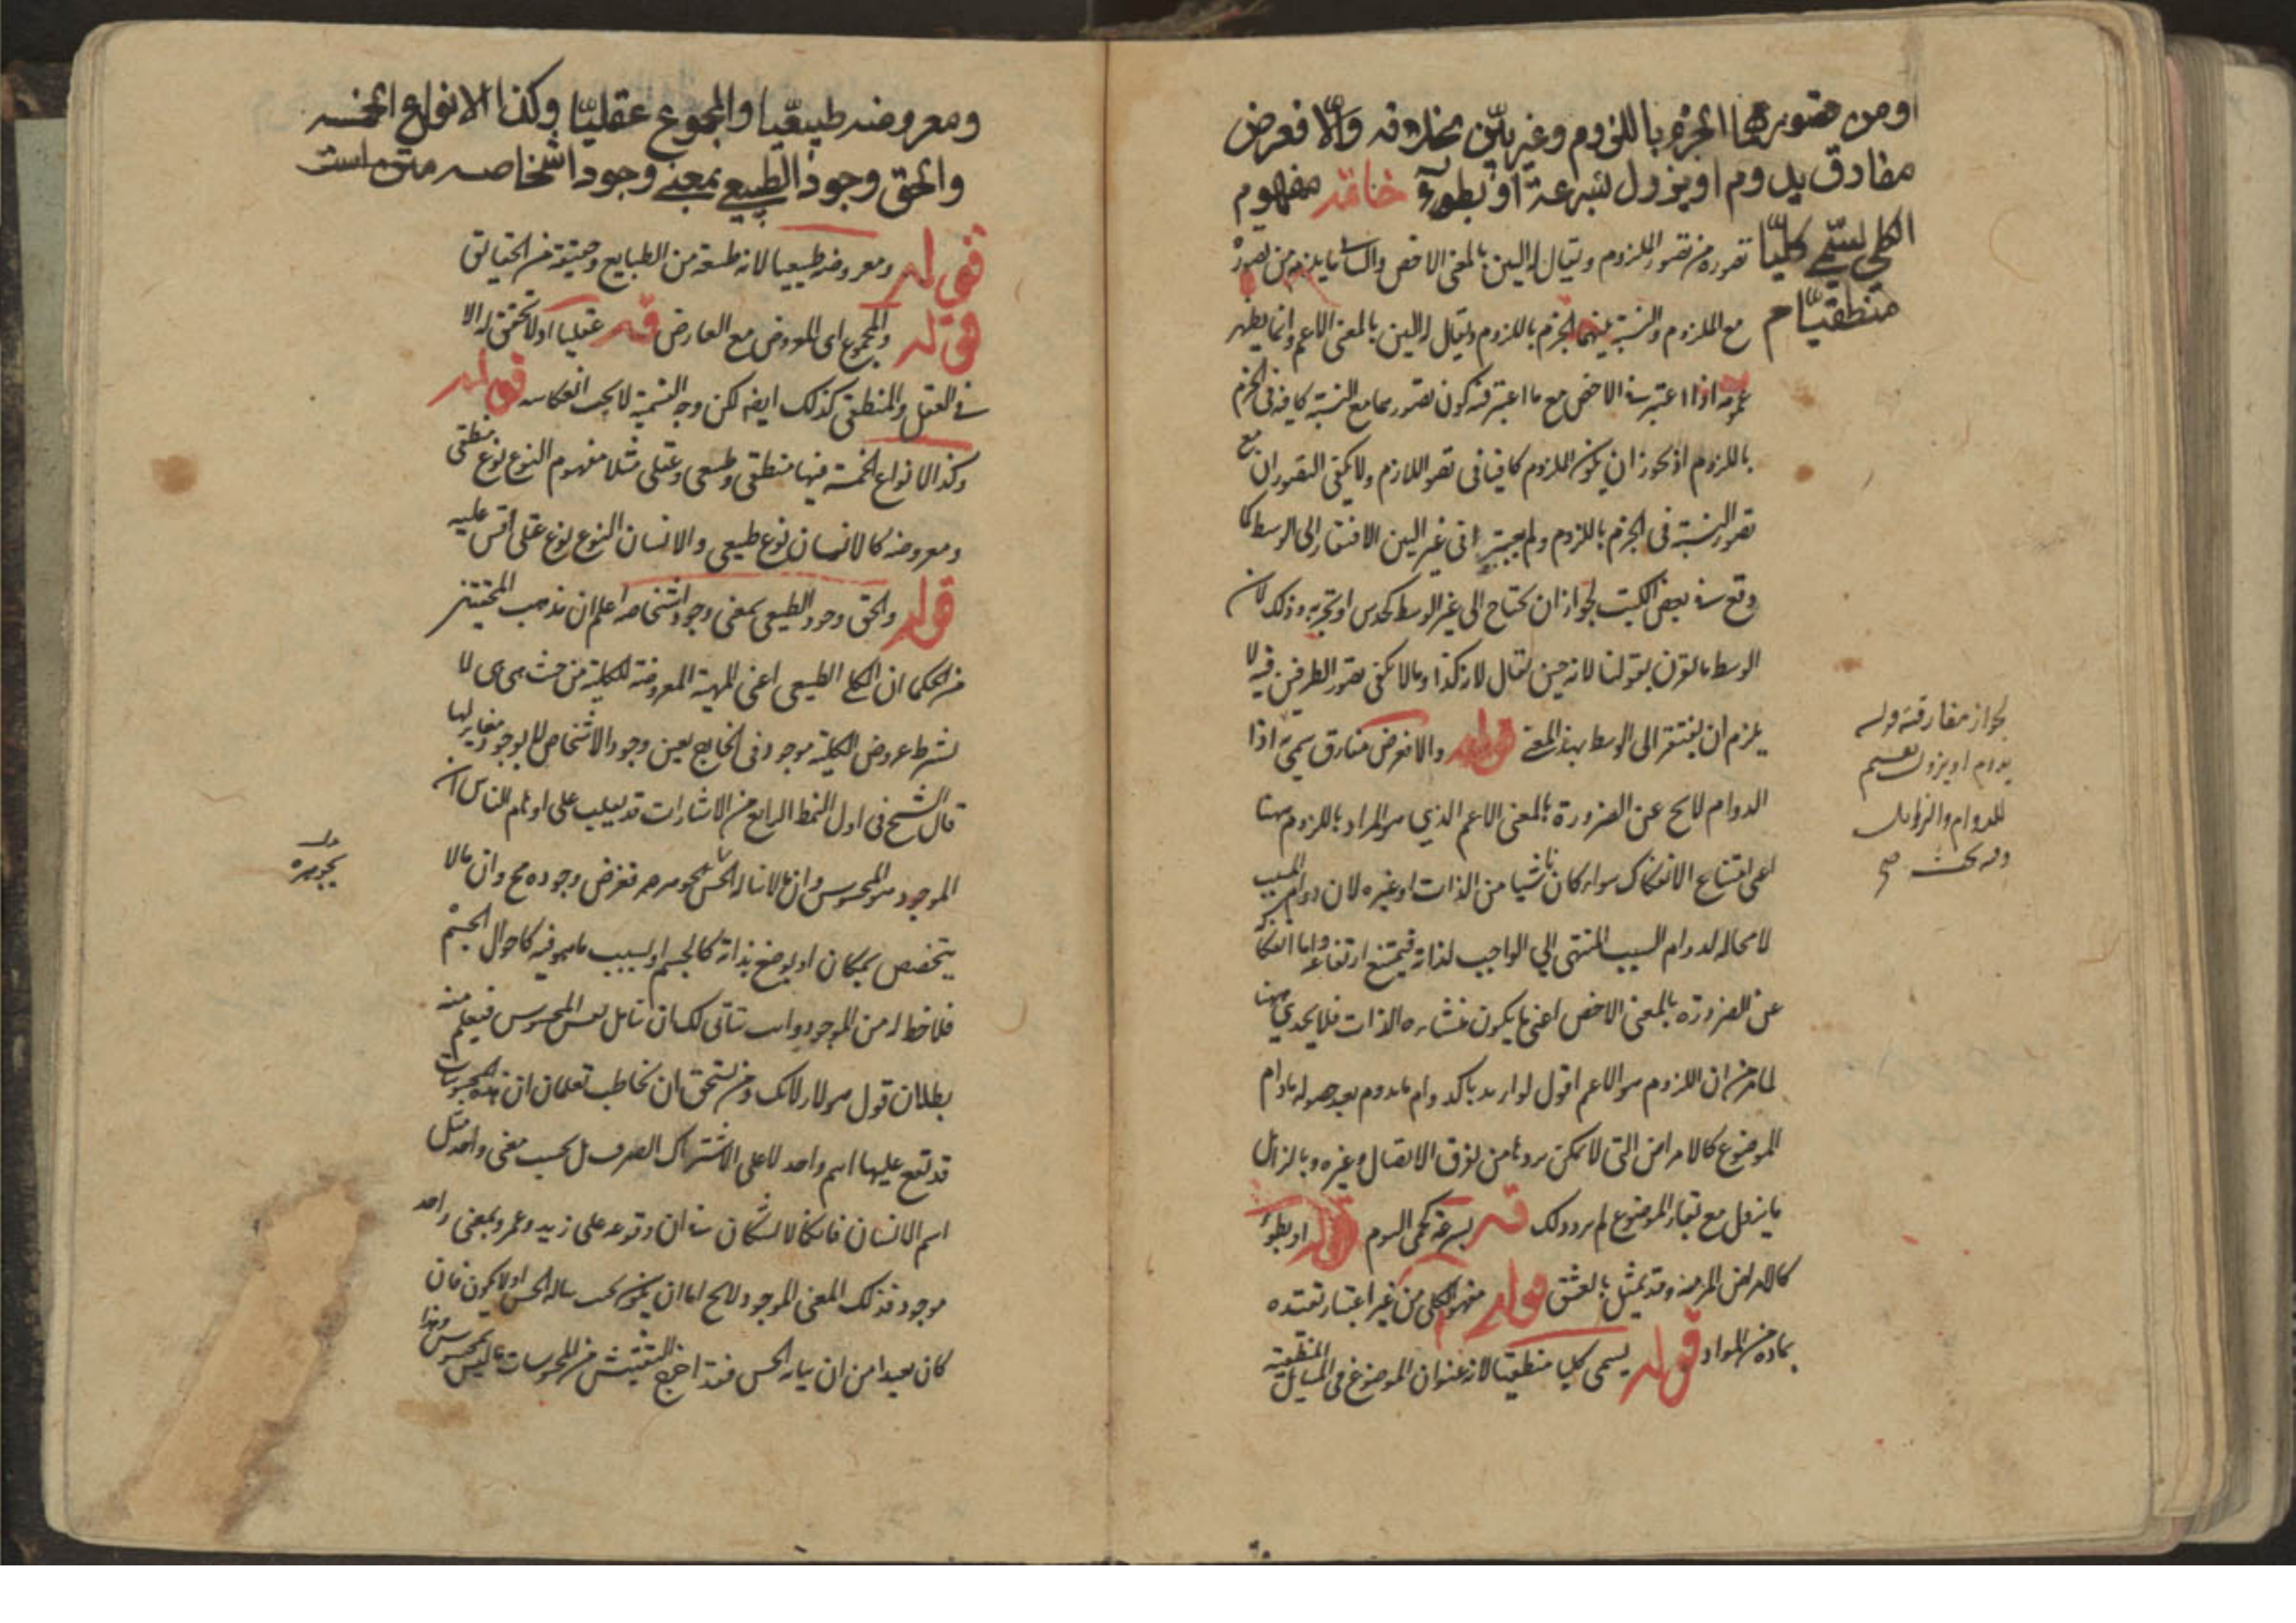 او من تصورهما الجزم باللزوم وغير بيّن بخلافه والّا فعرض
مفارق يدوم او يزول بسرعة او بطوء خاتمة مفهوم
الكلي يسمّى كليّا
منطقيّا م
تصوره من تصور الملزوم ويقال له البين بالمعنى الاخص والثانى ما يلزم من تصوره
مع الملزوم والنسبة بينهما الجزم باللزوم ويقال له البين بالمعنى الاعم وانما يظهر
عمومه اذا اعتبر فى الاخص مع ما اعتبر فيه كون تصورهما مع النسبة كافيه فى الجزم
باللزوم اذ يجوز ان يكون الملزوم كافيا فى تصور اللازم ولا يكفى التصوران مع
تصور النسبة فى الجزم باللزوم ولم يعتبر فى غير البين الافتقار الى الوسط كما
وقع فى بعض الكتب لجواز ان يحتاج الى غير الوسط كحدس او تجربه وذلك لان
الوسط ما يقرن بقولنا لانه حين يقال لانه كذا وما لا يكفى تصور الطرفين فيه لا
يلزم ان يفتقر الى الوسط بهذا المعنى قوله والا فعرض مفارق اذا
الدوام لا يخ عن الضرورة بالمعنى الاعم الذي هو المراد باللزوم ههنا
اعنى امتناع الانفكاك سواء كان ناشيا من الذات او غيره لان دوام المسبب
لا محاله لدوام السبب المنتهى الى الواجب لذاته فيمتنع ارتفاعه واما انفكاكه
عن الضرورة بالمعنى الاخص اعنى ما يكون منشاءه الذات فلا يجدي ههنا
لما مر من ان اللزوم هو الاعم اقول لو اريد بالدوام ما يدوم بعد حصوله مادام
الموضوع كالامراض التى لا يمكن بروها من تفرق الاتصال وغيره وبالزائل
ما يزول مع بقاء الموضوع لم يرد ذلك قوله بسرعة كحمى اليوم قوله او بطوء
كالامراض المزمنة وقد يمثل بالعشق قوله مفهوم الكلى من غير اعتبار تقيده
بمادة من المواد قوله يسمى كليا منطقيا لانه عنوان الموضوع فى المسايل المنطقية
لجواز مفارقته قوله
يدوم او يزول تقسيم
للدوام والزوال
وفيه بحث
ومعروضه طبيعّيا والمجموع عقليّا وكذا الانواع الخمسه
والحق وجود الطبيعى بمعنى وجود اشخاصه متن است
قوله ومعروضه طبيعيا لانه طبيعة من الطبايع وحقيقة من الحقايق
قوله والمجموع اى المعروض مع العارض قوله عقليا اذ لا تحقق له الا
فى العقل والمنطقى كذلك ايضه لكن وجه التسمية لا يجب انعكاسه قوله
وكذا الانواع الخمسة فيها منطقى وطبيعى وعقلى مثلا مفهوم النوع نوع منطقى
ومعروضه كالانسان نوع طبيعى والانسان النوع نوع عقلى وقس عليه
قوله والحق وجود الطبيعى بمعنى وجود اشخاصه اعلم ان مذهب المحققين
من الحكما ان الكلى الطبيعى اعنى المهية المعروضة للكلية من حيث هى هى لا
بشرط عروض الكلية موجود فى الخارج بعين وجود الاشخاص لا بوجود مغاير لها
قال الشيخ فى اول النمط الرابع من الاشارات قد يغلب على اوهام الناس ان
الموجود هو المحسوس وان ما لا يناله الحس بجوهره ففرض وجوده مح وان ما لا
يتخصص بمكان او بوضع بذاته كالجسم او بسبب ما هو فيه كاحوال الجسم
فلا حظ له من الوجود وانت يتاتى لك ان تتامل نفس المحسوس فيعلم منه
بطلان قول هولاء لانك ومن يستحق ان يخاطب تعلمان ان هذه المحسوسات
قد تقع عليها اسم واحد لا على الاشتراك الصرف بل بحسب معنى واحد مثل
اسم الانسان فانكما لا تشكان فى ان وقوعه على زيد وعمرو بمعنى واحد
موجود فذلك المعنى الموجود لا يخ اما ان يكون بحيث يناله الحس او لا يكون فان
كان بعيدا من ان يناله الحس فقد اخرج التفتيش من المحسوسات ما ليس بمحسوس وهذا
بجوهره